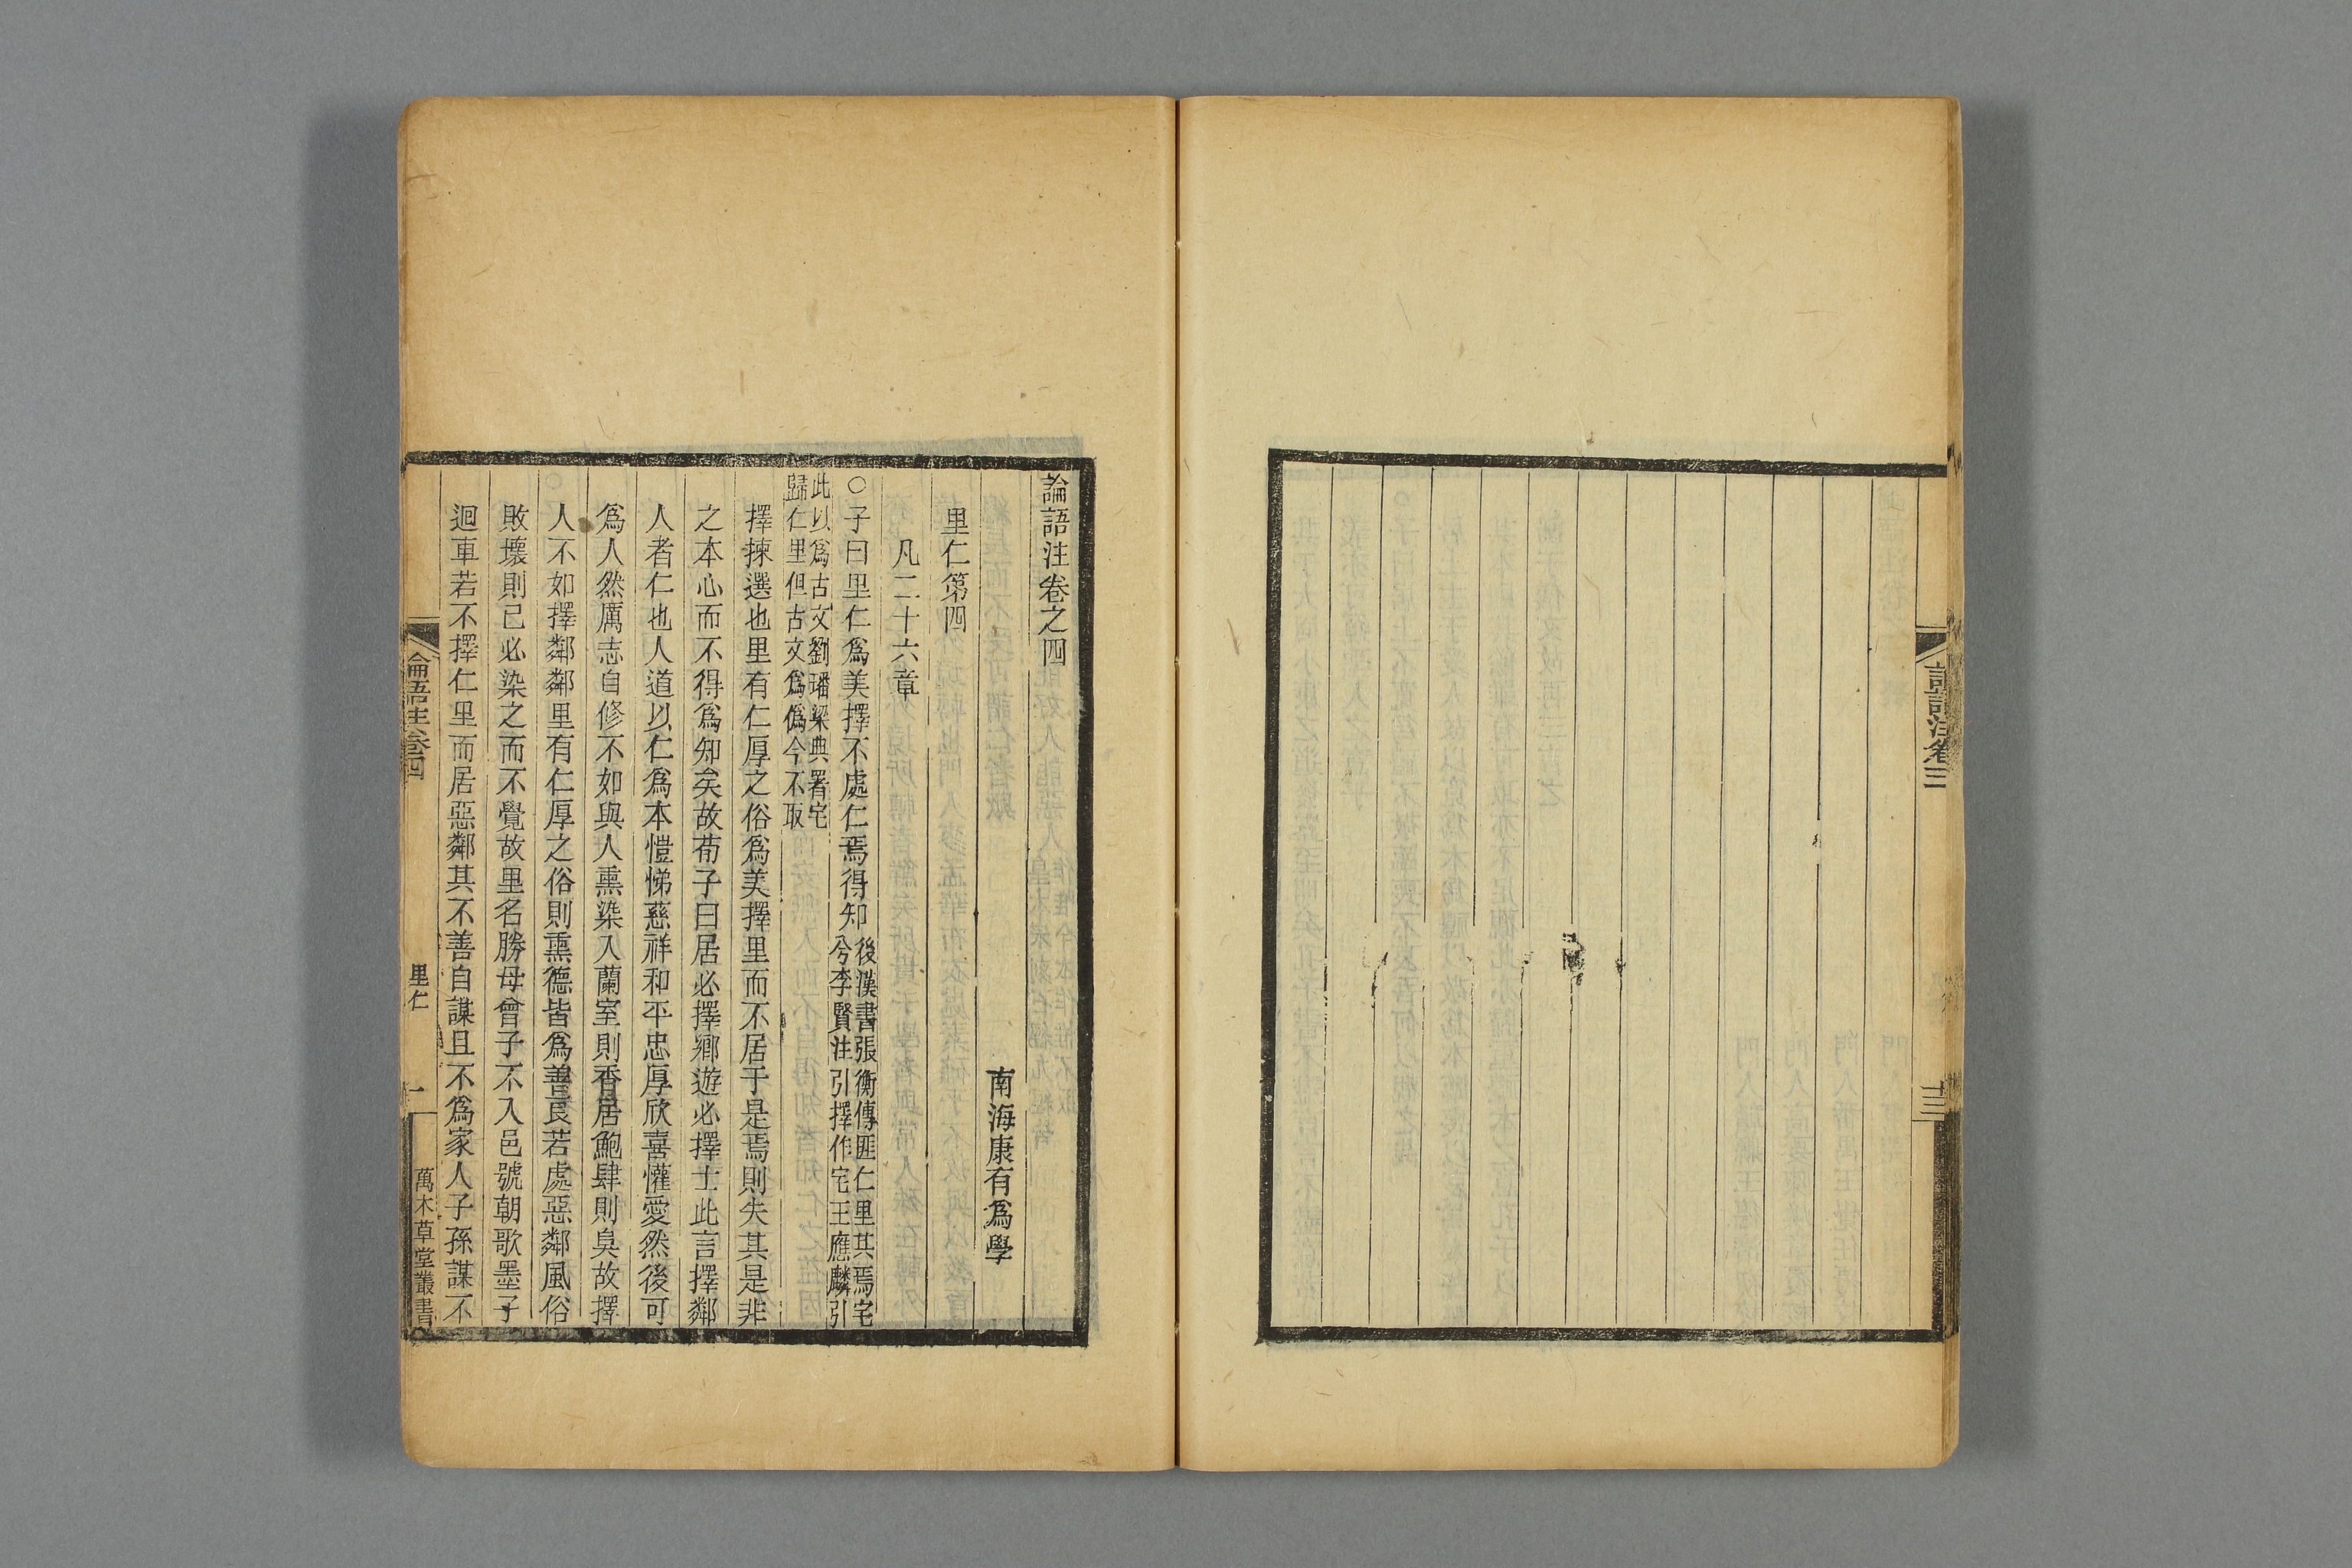 論語注卷三
十三
論語注卷之四
南海康有爲學
里仁第四
凡二十六章
○子曰里仁爲美擇不處仁焉得知
後漢書張衡傳匪仁里其焉宅
兮李賢注引擇作宅王應麟引
此以爲古文劉璠梁典署宅
歸仁里但古文爲僞今不取
擇揀選也里有仁厚之俗爲美擇里而不居于是焉則失其是非
之本心而不得爲知矣故荀子曰居必擇鄉遊必擇士此言擇鄰
人者仁也人道以仁爲本愷悌慈祥和平忠厚欣喜懽愛然後可
爲人然厲志自修不如與人熏染入蘭室則香居鮑肆則臭故擇
人不如擇鄰鄰里有仁厚之俗則熏德皆爲善良若處惡鄰風俗
敗壞則已必染之而不覺故里名勝母曾子不入邑號朝歌墨子
迴車若不擇仁里而居惡鄰其不善自謀且不爲家人子孫謀不
論語注卷四
里仁
一
萬木草堂叢書